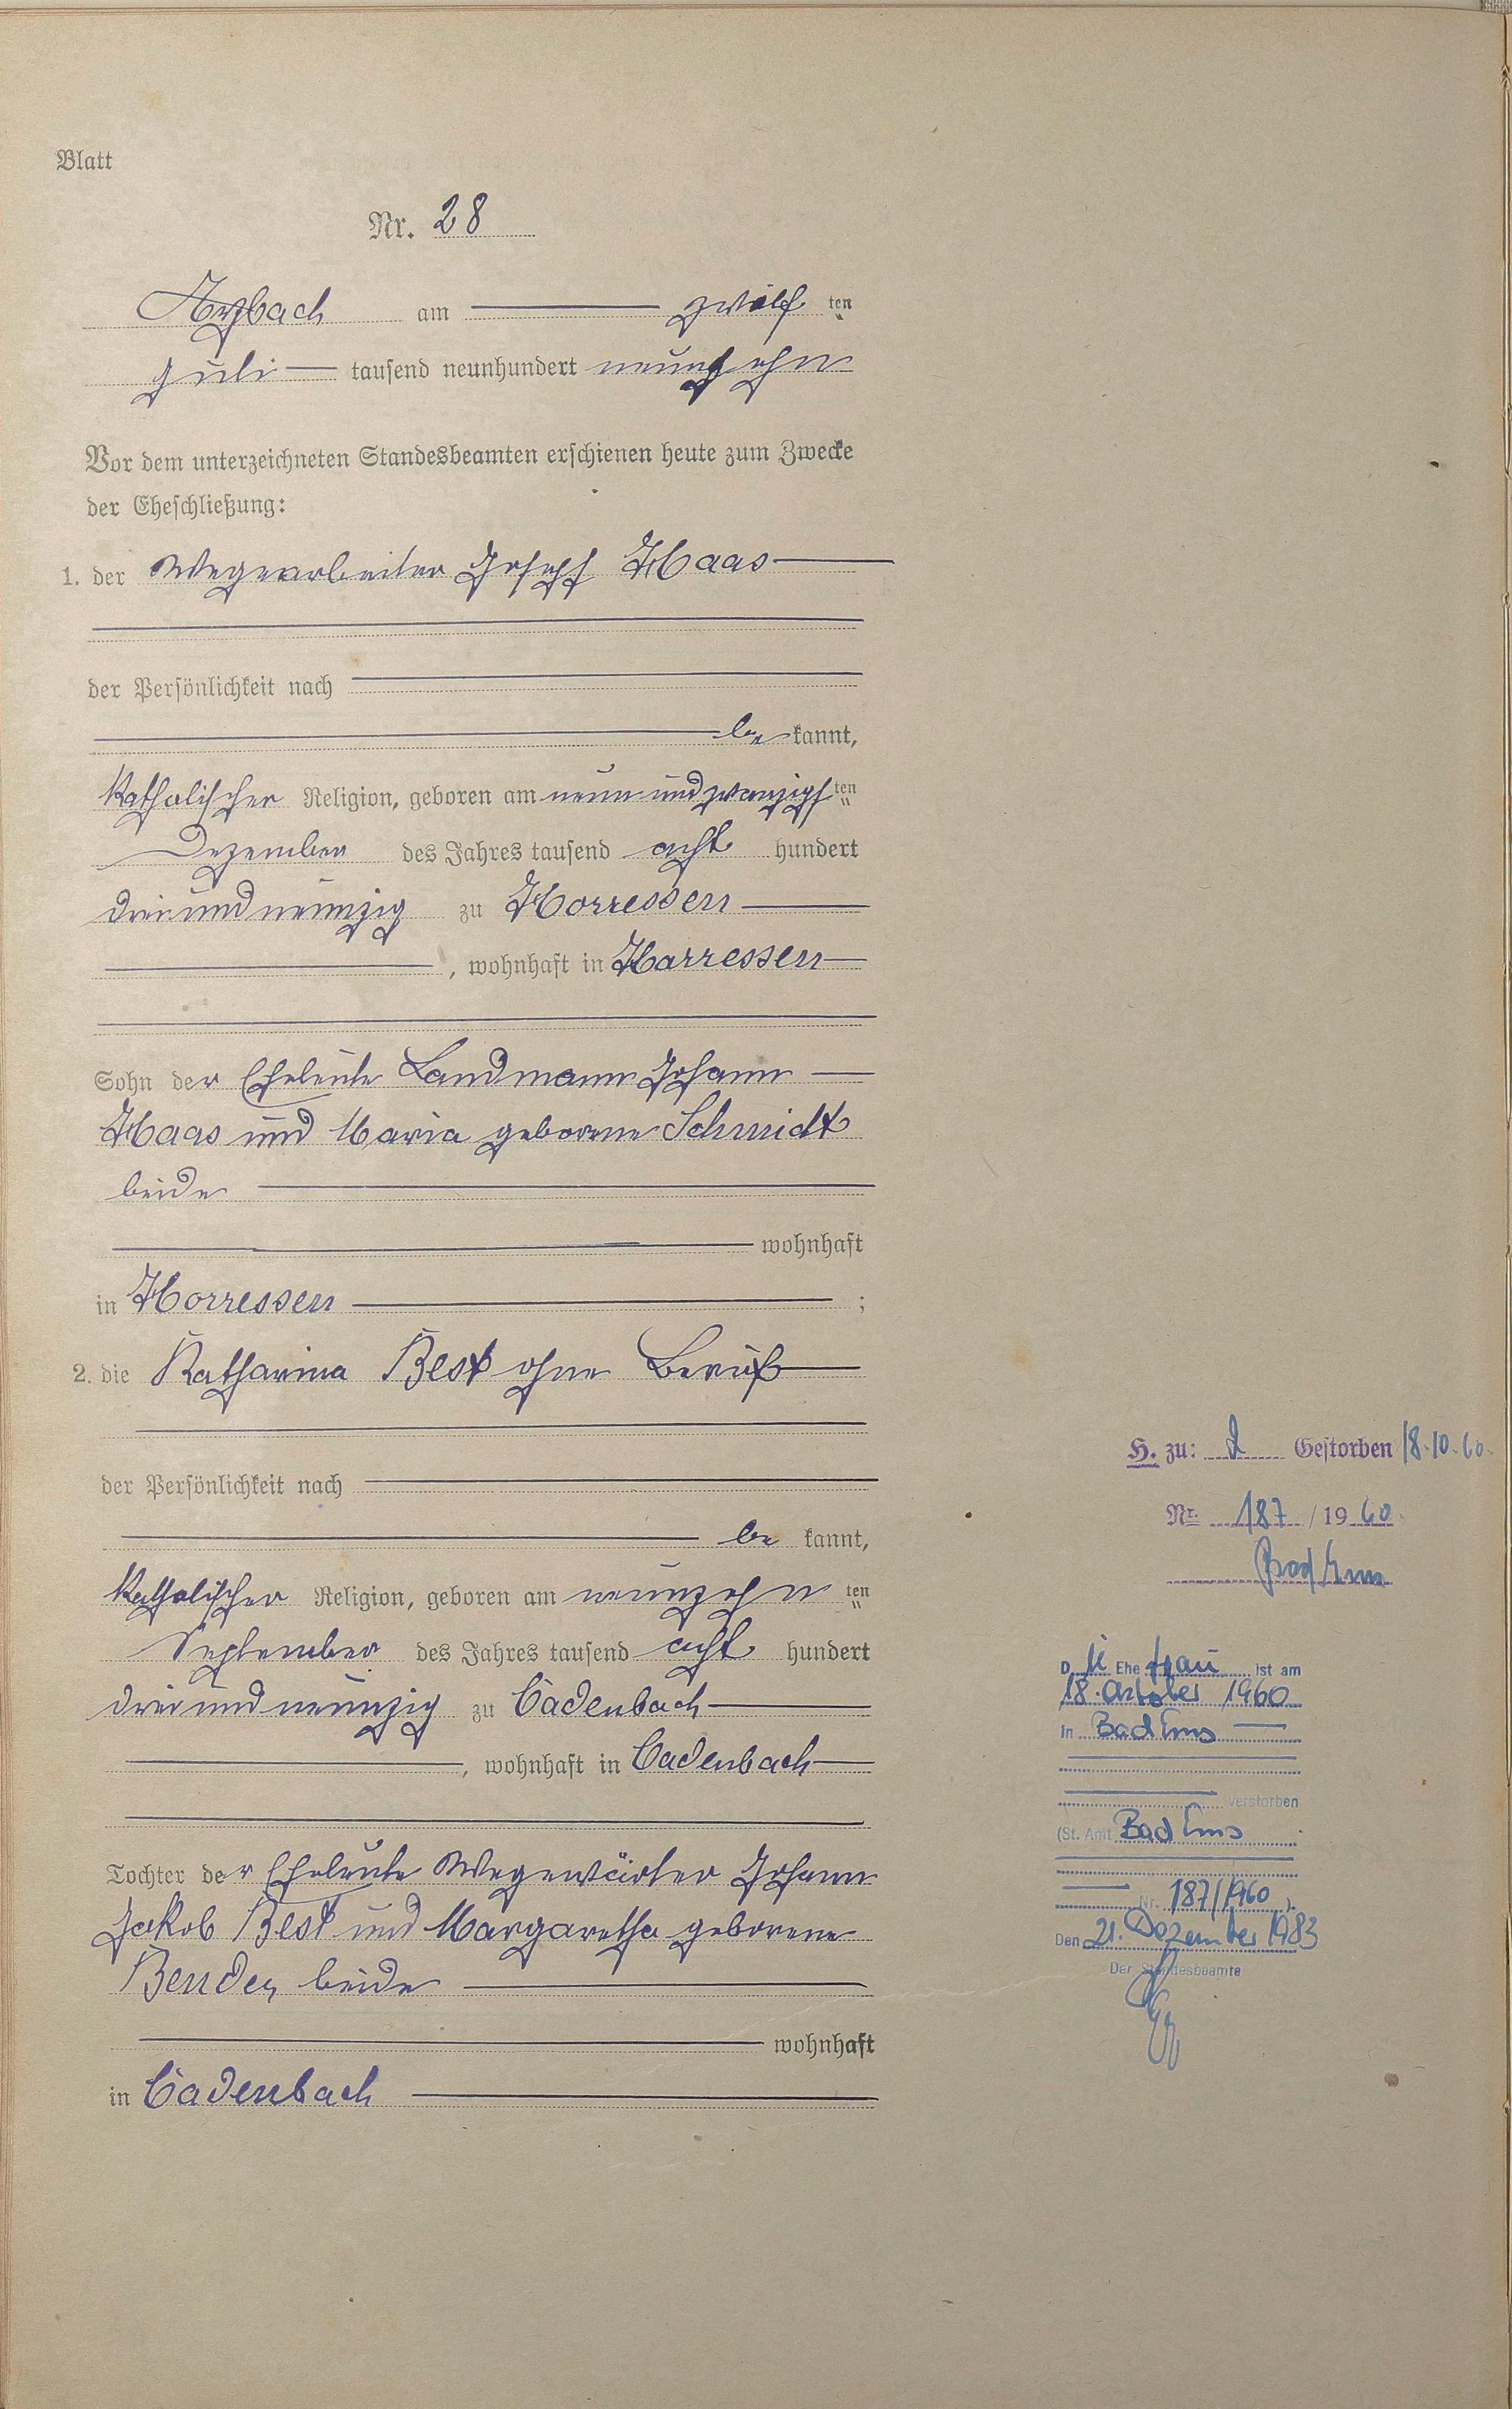 Blatt
Nr. 28
Arzbach am zwölf ten
Juli tausend neunhundert neunzehn
Vor dem unterzeichneten Standesbeamten erschienen heute zum Zwecke
der Eheschließung:
1. der Wegearbeiter Joseph Haas
der Persönlichkeit nach
be kannt,
Katholischer Religion, geboren am neun und zwanzigsten
Dezember des Jahres tausend acht hundert
drei und neunzig zu Horressen
, wohnhaft in Horressen
Sohn der Eheleute Landmann Johann
Haas und Maria geborene Schmidt
beide
wohnhaft
in Horressen ;
2. die Katharina Best ohne Beruf
der Persönlichkeit nach
be kannt,
Katholischer Religion, geboren am neunzehn ten
September des Jahres tausend acht hundert
drei und neunzig zu Cadenbach
, wohnhaft in Cadenbach
Tochter der Eheleute Wegewärter Johann
Jakob Best und Margaretha geborene
Bender, beide
wohnhaft
in Cadenbach
H. zu: 2 Gestorben 18.10.60.
Nr. 187 / 1960.
Bad Ems
Die Ehefrau ist am
18. Oktober 1960
in Bad Ems
verstorben
(St. Amt Bad Ems
Nr. 187/1960 ).
Den 21. Dezember 1983
Der Standesbeamte